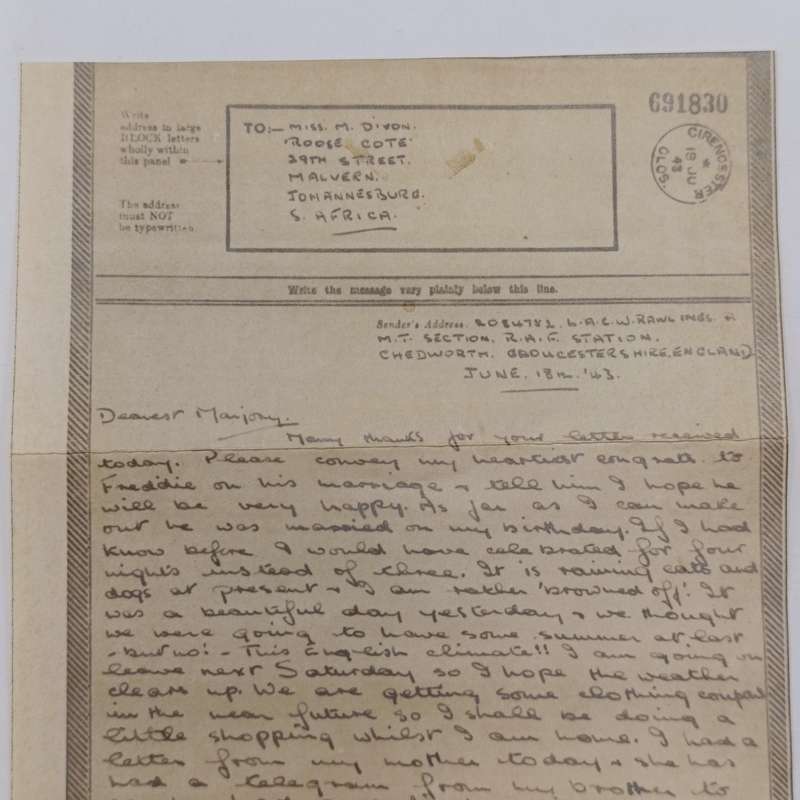 Write
address in large
BLOCK letters
wholly within
this panel
The address
must NOT
be typewritten.
TO:- MISS. M. DIXON.
'ROOSE COTE'
29TH STREET.
MALVERN.
JOHANNESBURG.
S. AFRICA.
691830
CIRENCESTER
19 JU
43
GLOS.
Write the message very plainly below this line.
Sender's Address. 2084782. L.A.C.W. RAWLINGS.
M.T. SECTION. R.A.F. STATION.
CHEDWORTH. GLOUCESTERSHIRE, ENGLAND
JUNE. 18th. '43.
Dearest Marjory.
Many thanks for your letter received
today. Please convey my heartiest congrats. to
Freddie on his marriage & tell him I hope he
will be very happy. As far as I can make
out he was married on my birthday. If I had
know before I would have celebrated for four
nights instead of three. It is raining cats and
dogs at present & I am rather 'browned off'. It
was a beautiful day yesterday & we thought
we were going to have some summer at last
- but no! - This English climate!! I am going on
leave next Saturday so I hope the weather
clears up. We are getting some clothing coupons
in the near future so I shall be doing a
little shopping whilst I am home. I had a
letter from my mother today & she has
had a telegram from my brother to